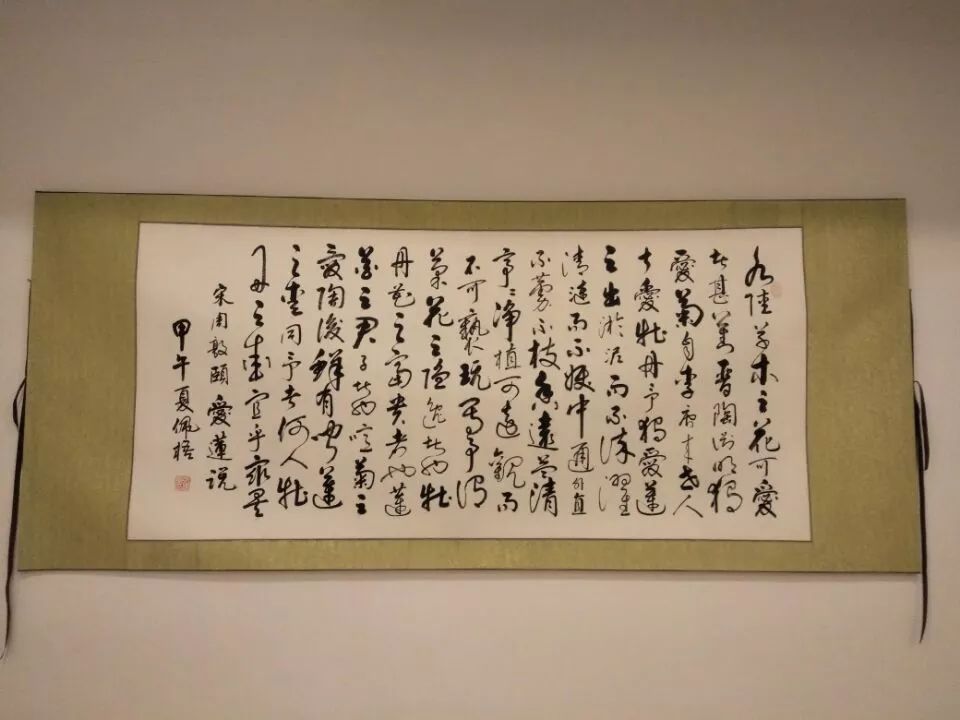 水陸草木之花可愛
者甚蕃晋陶淵明獨
愛菊自李唐来世人
大愛牡丹予獨愛蓮
之出淤泥而不染濯
清漣而不妖中通外直
不蔓不枝香遠益清
亭亭淨植可遠觀而
不可褻玩焉予謂
菊花之隐逸者也牡
丹花之富貴者也蓮
花之君子者也噫菊之
愛陶後鮮有聞蓮
之愛同予者何人牡
丹之愛宜乎衆矣
宋周敦頤愛蓮説
甲午夏佩梧